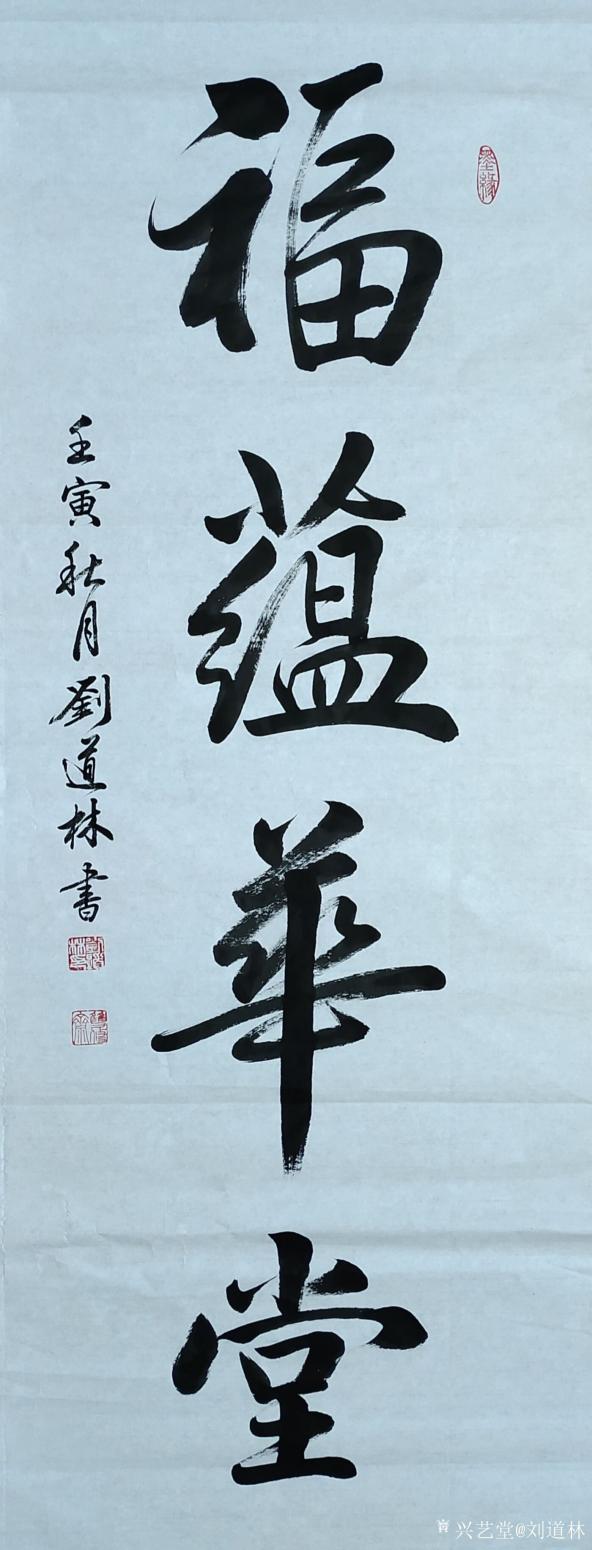 福蕴華堂
壬寅秋月劉道林書
墨缘
兴艺堂@刘道林